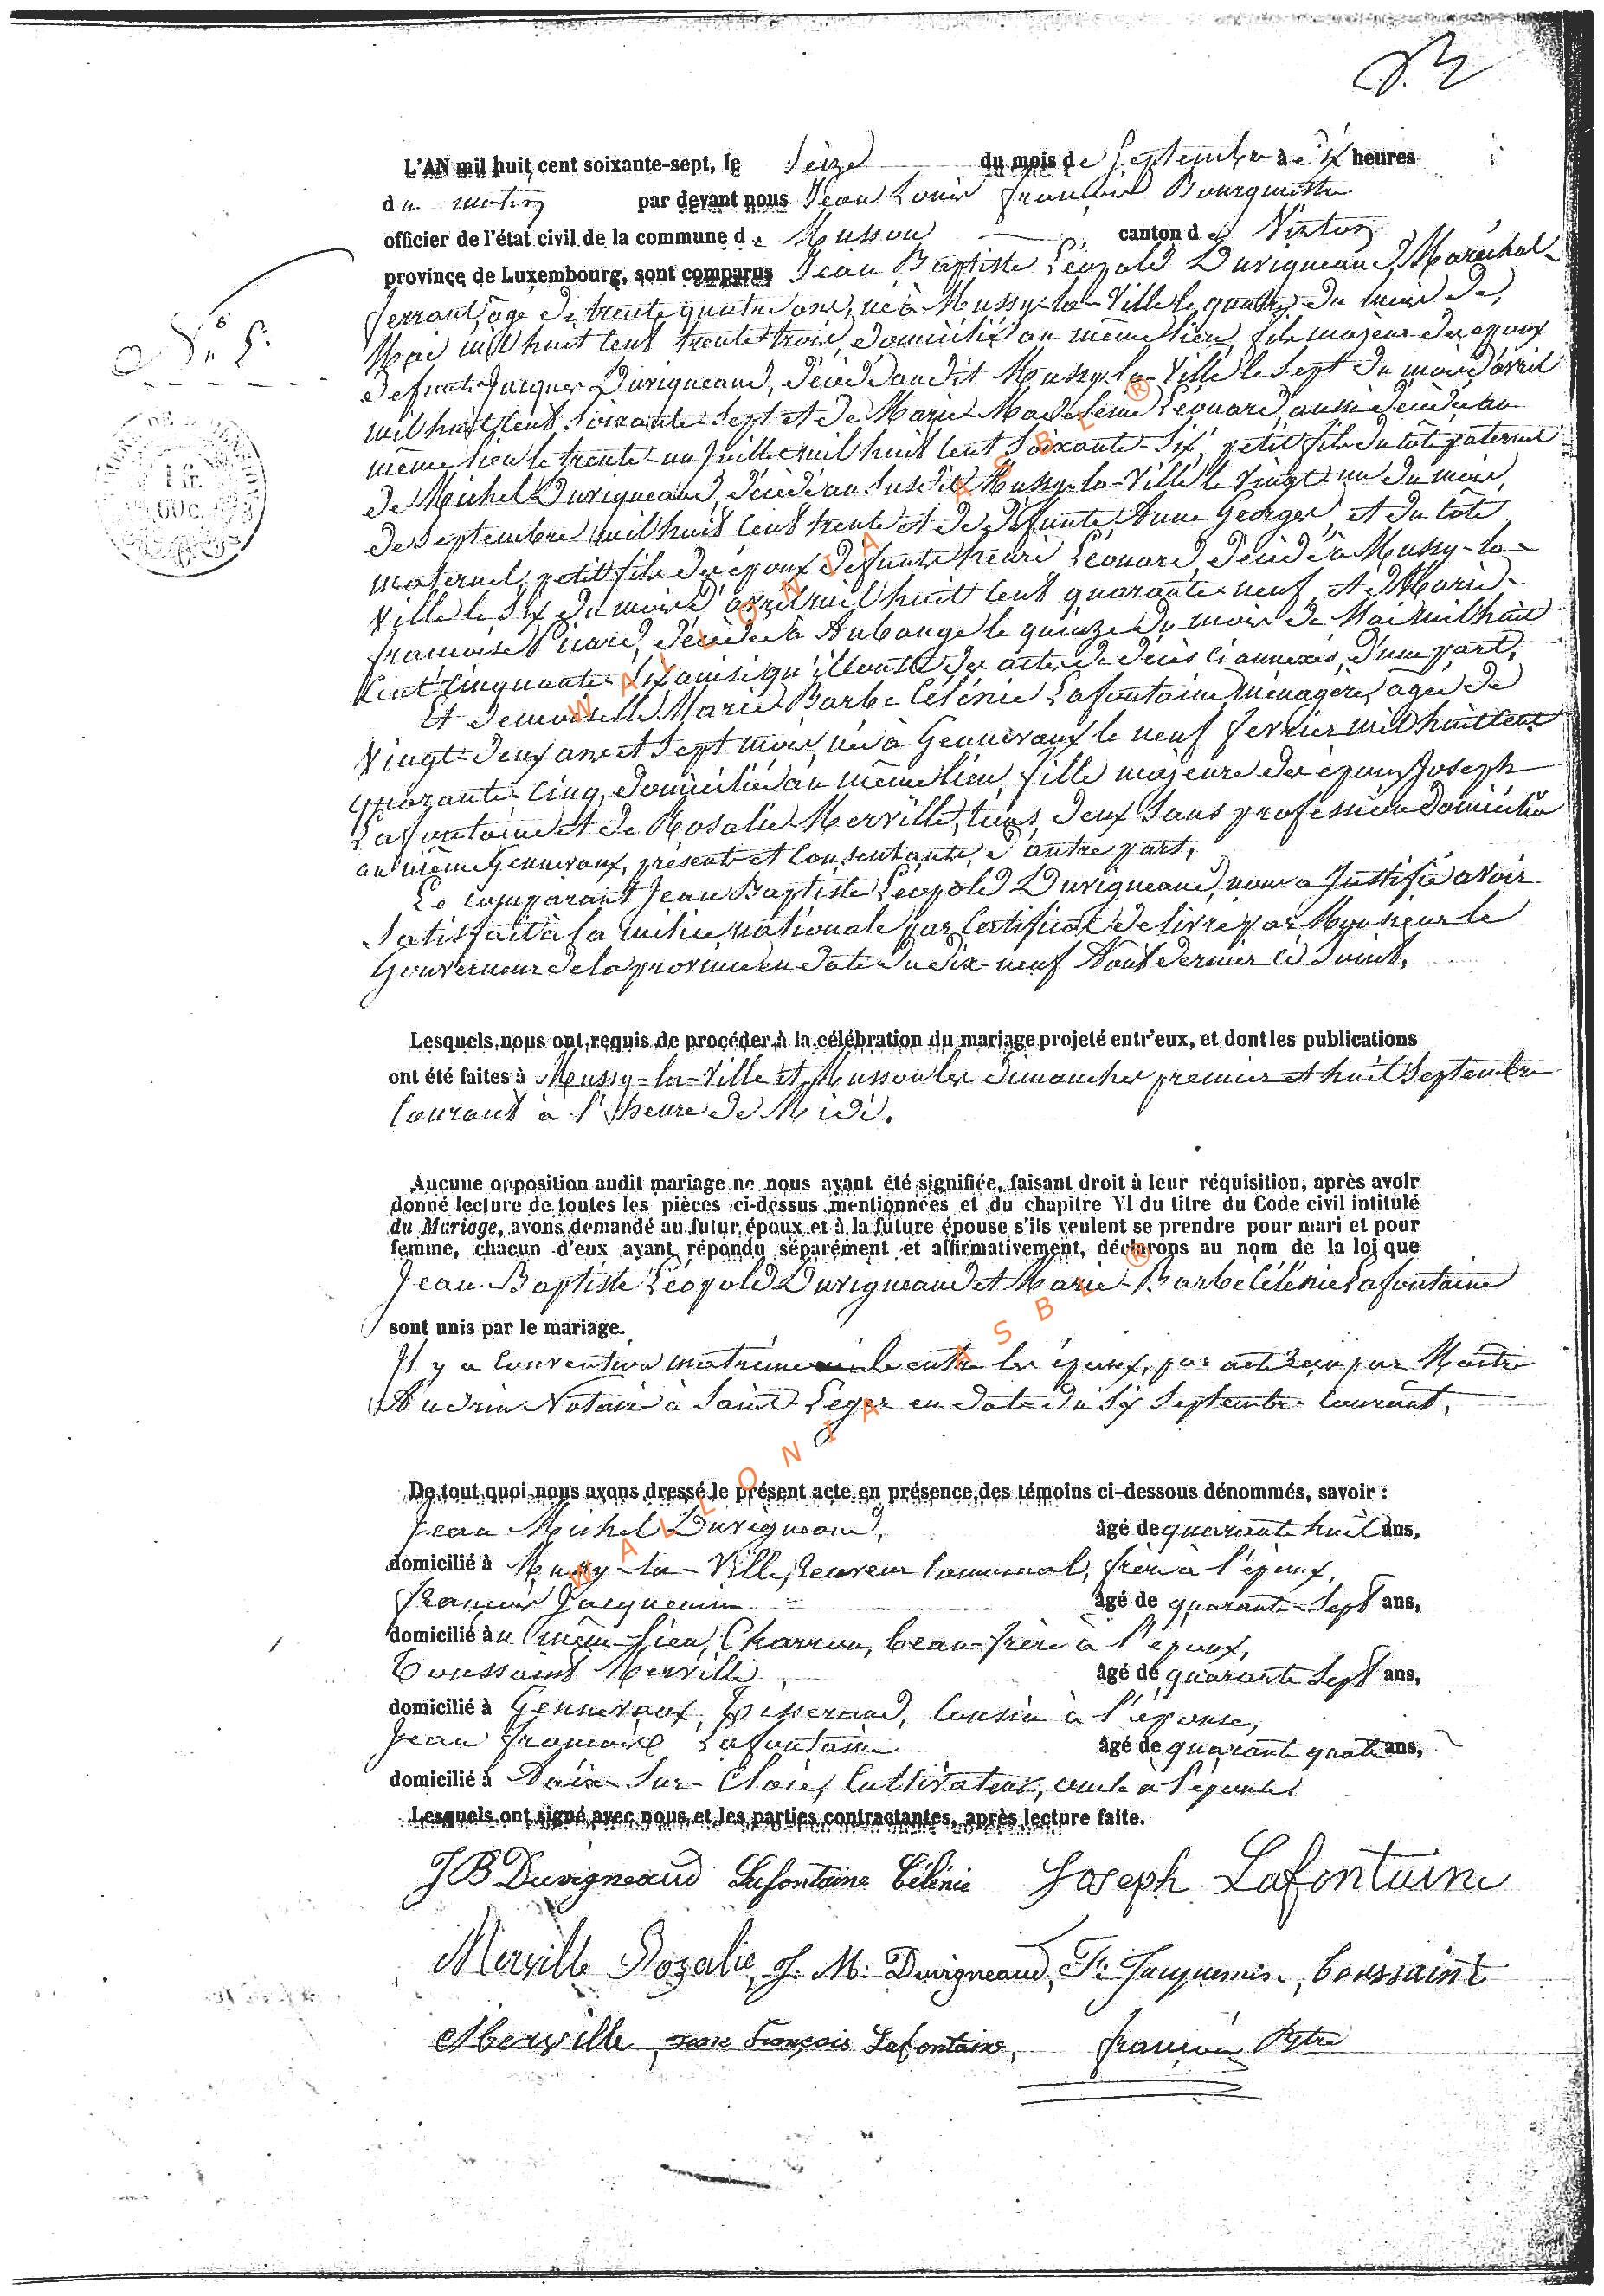 L'AN mil huit cent soixante-sept, le Seize du mois de Septembre à dix heures
du matin par devant nous Jean Louis François Bourguette
officier de l'état civil de la commune de Musson canton de Virton
province de Luxembourg, sont comparus Jean Baptiste Léopold Duvigneaud, Maréchal-
ferrant, âgé de trente quatre ans, né à Mussy-la-Ville le quatre du mois de
Mai mil huit cent trente trois, domicilié au même lieu, fils majeur des époux
N° 5.
defunts Jacques Duvigneaud, décédé audit Mussy-la-Ville le Sept du mois d'avril
mil huit cent Soixante-Sept et de Marie Madeleine Léonard, aussi décédée au
même lieu le trente-un Juillet mil huit cent Soixante-Six, petit fils du côté paternel
de Michel Duvigneaud, décédé au susdit Mussy-la-Ville le vingt un du mois
de Septembre mil huit cent trente et de défunte Anne Georges, et du côté
maternel, petit fils des époux défunts henri Léonard, décédé à Mussy-la-
Ville le Six du mois d'avril mil huit cent quarante-neuf et de Marie-
françoise décédée à Aubange le quinze du mois de Mai mil huit
Cent cinquante-Six ainsi qu'il conste des actes de décès ci annexés, d'une part,
Et demoiselle Marie-Barbe Célénie Lafontaine, Ménagère, âgée de
vingt-deux ans et Sept mois, née à Gennevaux le neuf février mil huit cent
quarante-cinq, domiciliée au même lieu, fille majeure des époux Joseph
Lafontaine et de Rosalie Merville, tous deux Sans profession domiciliés
au même Gennevaux, présents et consentants, d'autre part,
Le comparant Jean Baptiste Léopold Duvigneaud, nous a Justifié avoir
Satisfait à la milice nationale par Certificat délivré par Monsieur le
Gouverneur de la province en date du dix-neuf Août dernier ci Joint,
1 fr.
60 c.
Lesquels nous ont requis de procéder à la célébration du mariage projeté entr'eux, et dont les publications
ont été faites à Mussy-la-Ville et Musson les dimanches premier et huit Septembre
Courant à l'heure de Midi.
Aucune opposition audit mariage ne nous ayant été signifiée, faisant droit à leur réquisition, après avoir
donné lecture de toutes les pièces ci-dessus mentionnées et du chapitre VI du titre du Code civil intitulé
du Mariage, avons demandé au futur époux et à la future épouse s'ils veulent se prendre pour mari et pour
femme, chacun d'eux ayant répondu séparément et affirmativement, déclarons au nom de la loi que
Jean Baptiste Léopold Duvigneaud et Marie-Barbe Célénie Lafontaine
sont unis par le mariage.
Il y a Convention matrimoniale entre les époux, par acte reçu par Maître
Notaire à Saint-Léger en date du Six Septembre Courant,
De tout quoi nous avons dressé le présent acte en présence des témoins ci-dessous dénommés, savoir :
Jean Michel Duvigneaud, âgé de quarante huit ans,
domicilié à Mussy-la-Ville, receveur Communal, frère à l'époux,
François Jacquemin âgé de quarante-Sept ans,
domicilié au même lieu, Charron, beau-frère à l'époux,
Toussaint Merville, âgé de quarante Sept ans,
domicilié à Gennevaux, Tisserand, Cousin à l'épouse,
Jean François Lafontaine âgé de quarante quatre ans,
domicilié à Baix-Sur-Cloie, Cultivateur, oncle à l'épouse.
Lesquels ont signé avec nous et les parties contractantes, après lecture faite.
JB Duvigneaud Lafontaine Célénie Joseph Lafontaine
Merville Rozalie, J. M. Duvigneaud, Fr. Jacquemin, toussaint
Merville, jean François Lafontaine, françois
WALLONIA ASBL ®
WALLONIA ASBL ®